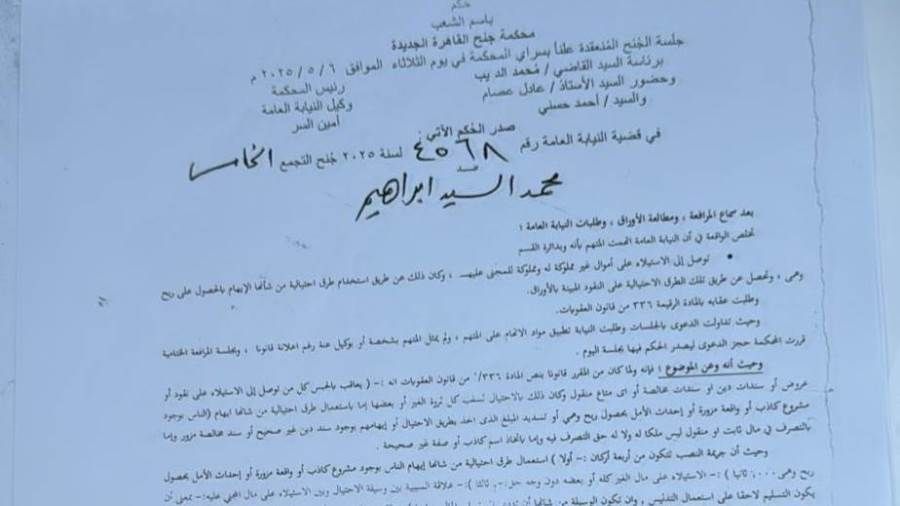 حكم
باسم الشعب
محكمة جنح القاهرة الجديدة
جلسة الجُنح المُنعقدة علناً بسراي المحكمة في يوم الثلاثاء الموافق ٦ / ٥ / ٢٠٢٥ م
برئاسة السيد القاضي / مُحمد الديب رئيس المحكمة
وحضور السيد الأستاذ / عادل عصام وكيل النيابة العامة
والسيد / أحمد حسني أمين السر
صدر الحُكم الآتي
في قضية النيابة العامة رقم ٤٥٦٨ لسنة ٢٠٢٥ جُنح التجمع الخامس
ضد
محمد السيد ابراهيم
بعد سماع المرافعة ، ومطالعة الأوراق ، وطلبات النيابة العامة :
تخلص الواقعة في أن النيابة العامة اتهمت المتهم بأنه وبدائرة القسم
• توصل إلى الاستيلاء على أموال غير مملوكة له ومملوكة للمجنى عليهم ، وكان ذلك عن طريق استخدام طرق احتيالية من شأنها الإيهام بالحصول على ربح
وهمى ، وتحصل عن طريق تلك الطرق الاحتيالية على النقود المبينة بالأوراق.
وطلبت عقابه بالمادة الرقيمة ٣٣٦ من قانون العقوبات.
وحيث تداولت الدعوى بالجلسات وطلبت النيابة تطبيق مواد الاتهام على المتهم ، ولم يمثل المتهم بشخصة أو بوكيل عنة رغم اعلانة قانونا ، وبجلسة المرافعة الختامية
قررت المحكمة حجز الدعوى ليصدر الحكم فيها بجلسة اليوم .
وحيث أنه وعن الموضوع : فإنه ولما كان من المقرر قانونا بنص المادة ٣٣٦/١ من قانون العقوبات انه :- ( يعاقب بالحبس كل من توصل إلى الاستيلاء على نقود أو
عروض أو سندات دين او سندات مخالصة أو اى متاع منقول وكان ذلك بالاحتيال لسلب كل ثروة الغير أو بعضها إما باستعمال طرق احتيالية من شانها ايهام الناس بوجود
مشروع كاذب أو واقعة مزورة أو إحداث الأمل بحصول ربح وهمي أو تسديد المبلغ الذى اخذ بطريق الاحتيال أو إيهامهم بوجود سند دين غير صحيح أو سند مخالصة مزور وإما
بالتصرف في مال ثابت او منقول ليس ملكا له ولا له حق التصرف فيه وإما باتخاذ اسم كاذب أو صفة غير صحيحة .
وحيث أن جريمة النصب تتكون من أربعة أركان :- أولا ) استعمال طرق احتيالية من شانها إيهام الناس بوجود مشروع كاذب أو واقعة مزورة أو إحداث الأمل بحصول
ربح وهمى .... ثانيا ) :- الاستيلاء على مال الغير كله أو بعضه دون وجه حق :- ثالثا ) :- علاقة السببية بين وسيلة الاحتيال وبين الاستيلاء على مال المجنى عليه :- بمعنى أن
يكون التسليم لاحقا على استعمال التدليس ، وان تكون الوسيلة من شانها